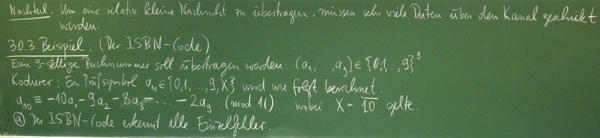 Nachteil: Um eine relativ kleine Nachricht zu übertragen, müssen sehr viele Daten über den Kanal geschickt
werden.
30.3. Beispiel: (Der ISBN-Code)
Eine 9-stellige Buchnummer soll übertragen werden: (a₁, ..., a₉) ∈ {0,1,..,9}⁹
Kodierer: Ein Prüfsymbol a₁₀ ∈ {0,1,..,9,X} wird wie folgt berechnet:
a₁₀ ≡ -10a₁ - 9a₂ - 8a₃ - ... - 2a₉ (mod 11) wobei X = 10 gelte.
① Der ISBN-Code erkennt alle Einzelfehler.